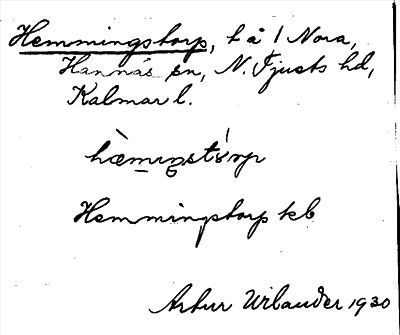 Hemmingstorp, t å 1 Nora,
Hannäs sn, N. Tjusts hd,
Kalmar l.
hæ̀miŋstórp
Hemmingstorp kb
Artur Urbander 1930